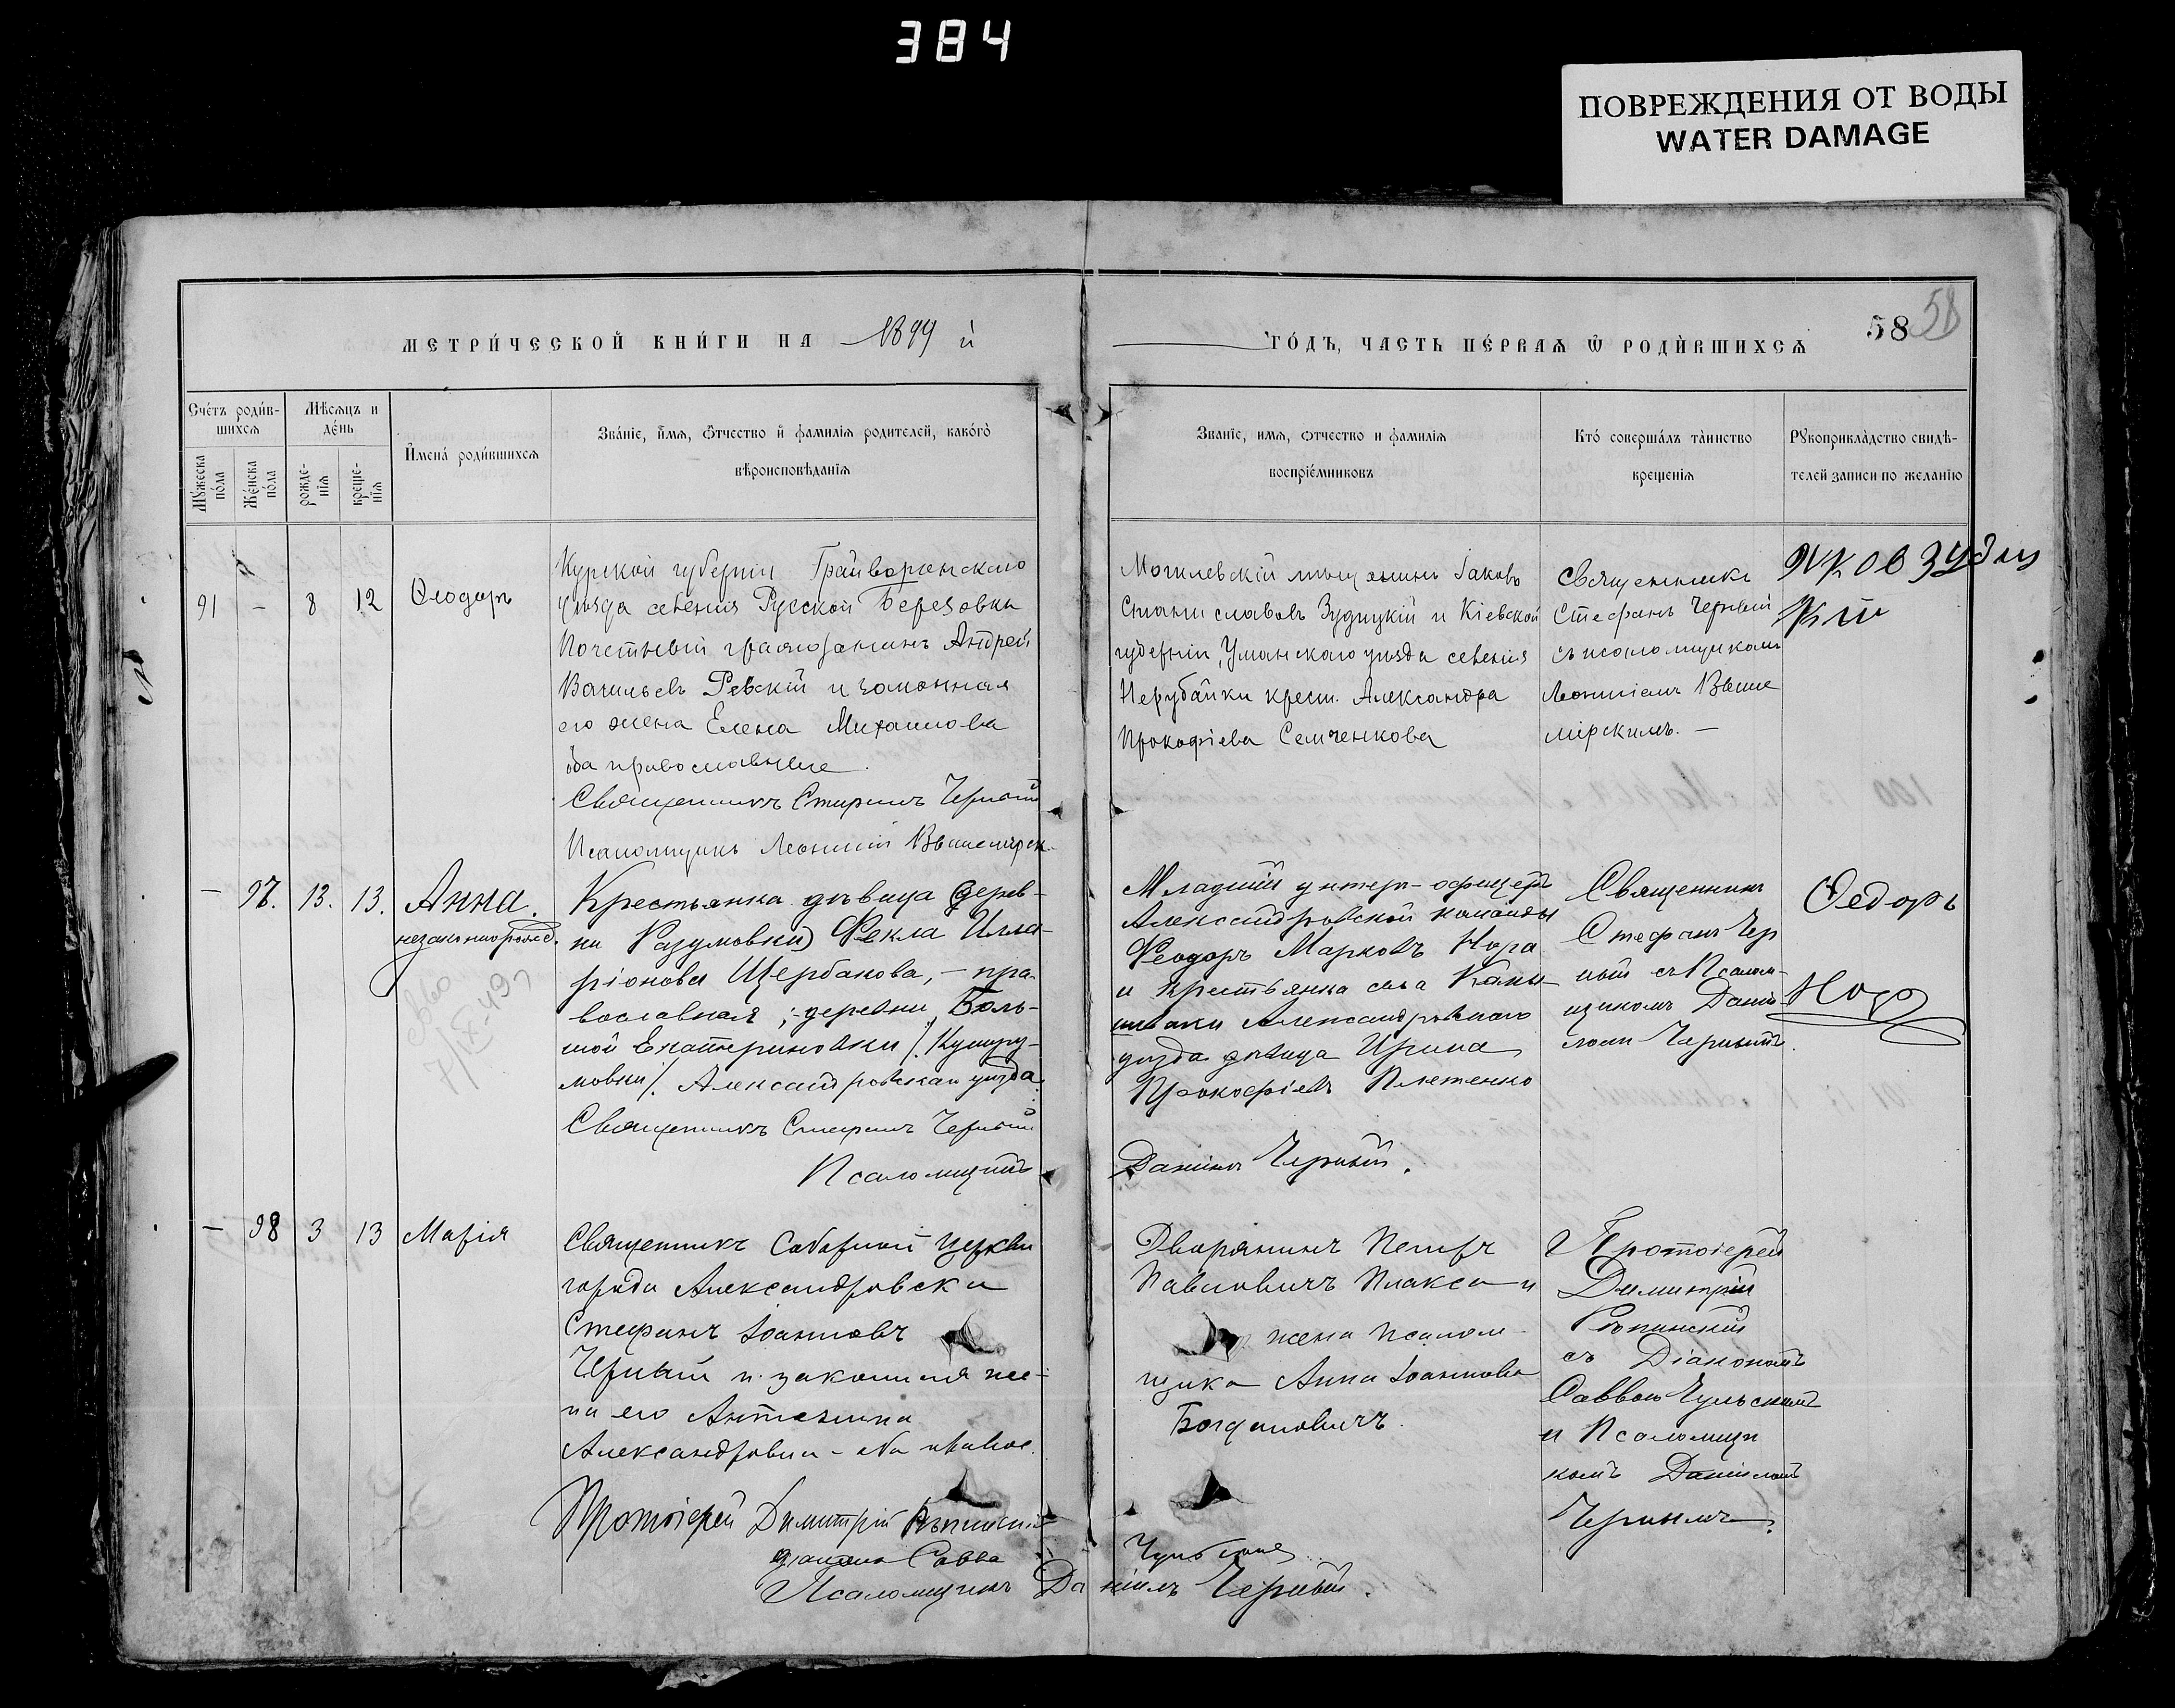 384
ПОВРЕЖДЕНИЯ ОТ ВОДЫ
WATER DAMAGE
МЕТРИ́ЧЕСКОЙ КНИ́ГИ НА 1899 й
ГО́ДЪ, ЧАСТЬ ПЕ́РВАЯ Ѿ РОДИ́ВШИХСЯ
58 58
Сче́тъ роди́в-
шихся
Мѣсяцъ и
де́нь
Мужеска
по́ла
Же́нска
по́ла
рожде-
нія
креще-
нія
Имена́ роди́вшихся
Зва́ніе, имя, ѻтчество и фамилія родителей, како́гѡ
вѣроисповѣданія
Званіе, имя, ѻтчество и фамилія
воспріе́мниковъ
Кто́ соверша́лъ та́инство
крещенія
Рꙋкоприкла́дство свидѣ-
телей записи по желанію
91 - 8 12 Ѳеодоръ
Курской губерніи Грайворонскаго
уѣзда селенія Русской Березовки
Почетный гражданинъ Андрей
Васильевъ Ревскій и законная
его жена Елена Михаилова
оба православные.
Священникъ Стефанъ Черный
Псаломщикъ Леонтій Вышемірск.
Могилевскій мѣщанинъ Іаковъ
Станиславовъ Зудицкій и Кіевской
губерніи, Уманскаго уѣзда селенія
Нерубайки крест. Александра
Прокофіева Семченкова
Священникъ
Стефанъ Черный
съ псаломщикомъ
Леонтіемъ Выше
мірскимъ. —
— 97. 13. 13. Анна.
незаконнорожд.
7/IX-49г
Крестьянка дѣвица дерев-
ни Разумовки) Фекла Илла-
ріонова Щербакова, - пра-
вославная; деревни Боль-
шой Екатериновки /Кушугу-
мовки/. Александровскаго уѣзда.
Священникъ Стефанъ Черный
Псаломщикъ
Младшій унтеръ-офицеръ
Александровской команды
Феодоръ Марковъ Нога
и крестьянка села Камы-
шевахи Александровскаго
уѣзда дѣвица Ирина
Прокофіева Плетенко
Даніилъ Черный.
Священникъ
Стефанъ Чер
ный съ Псалом-
щикомъ Даніи-
ломъ Чернымъ.
Ѳедоръ
Нога
— 98 3 13 Марія
Священникъ Соборной церкви
города Александровска
Стефанъ Іоанновъ
Черный и законная же-
на его Антонина
Александровна - оба правос.
Протоіерей Димитрій Рѣпинскій
діаконъ Савва Чульскій
Псаломщикъ Даніилъ Черный.
Дворянинъ Петръ
Павловичъ Плакса и
жена Псалом-
щика Анна Іоаннова
Богдановичъ.
Протоіерей
Димитрій
Рѣпинскій
съ Діакономъ
Саввою Чульскимъ
и Псаломщи
комъ Даніиломъ
Чернымъ.